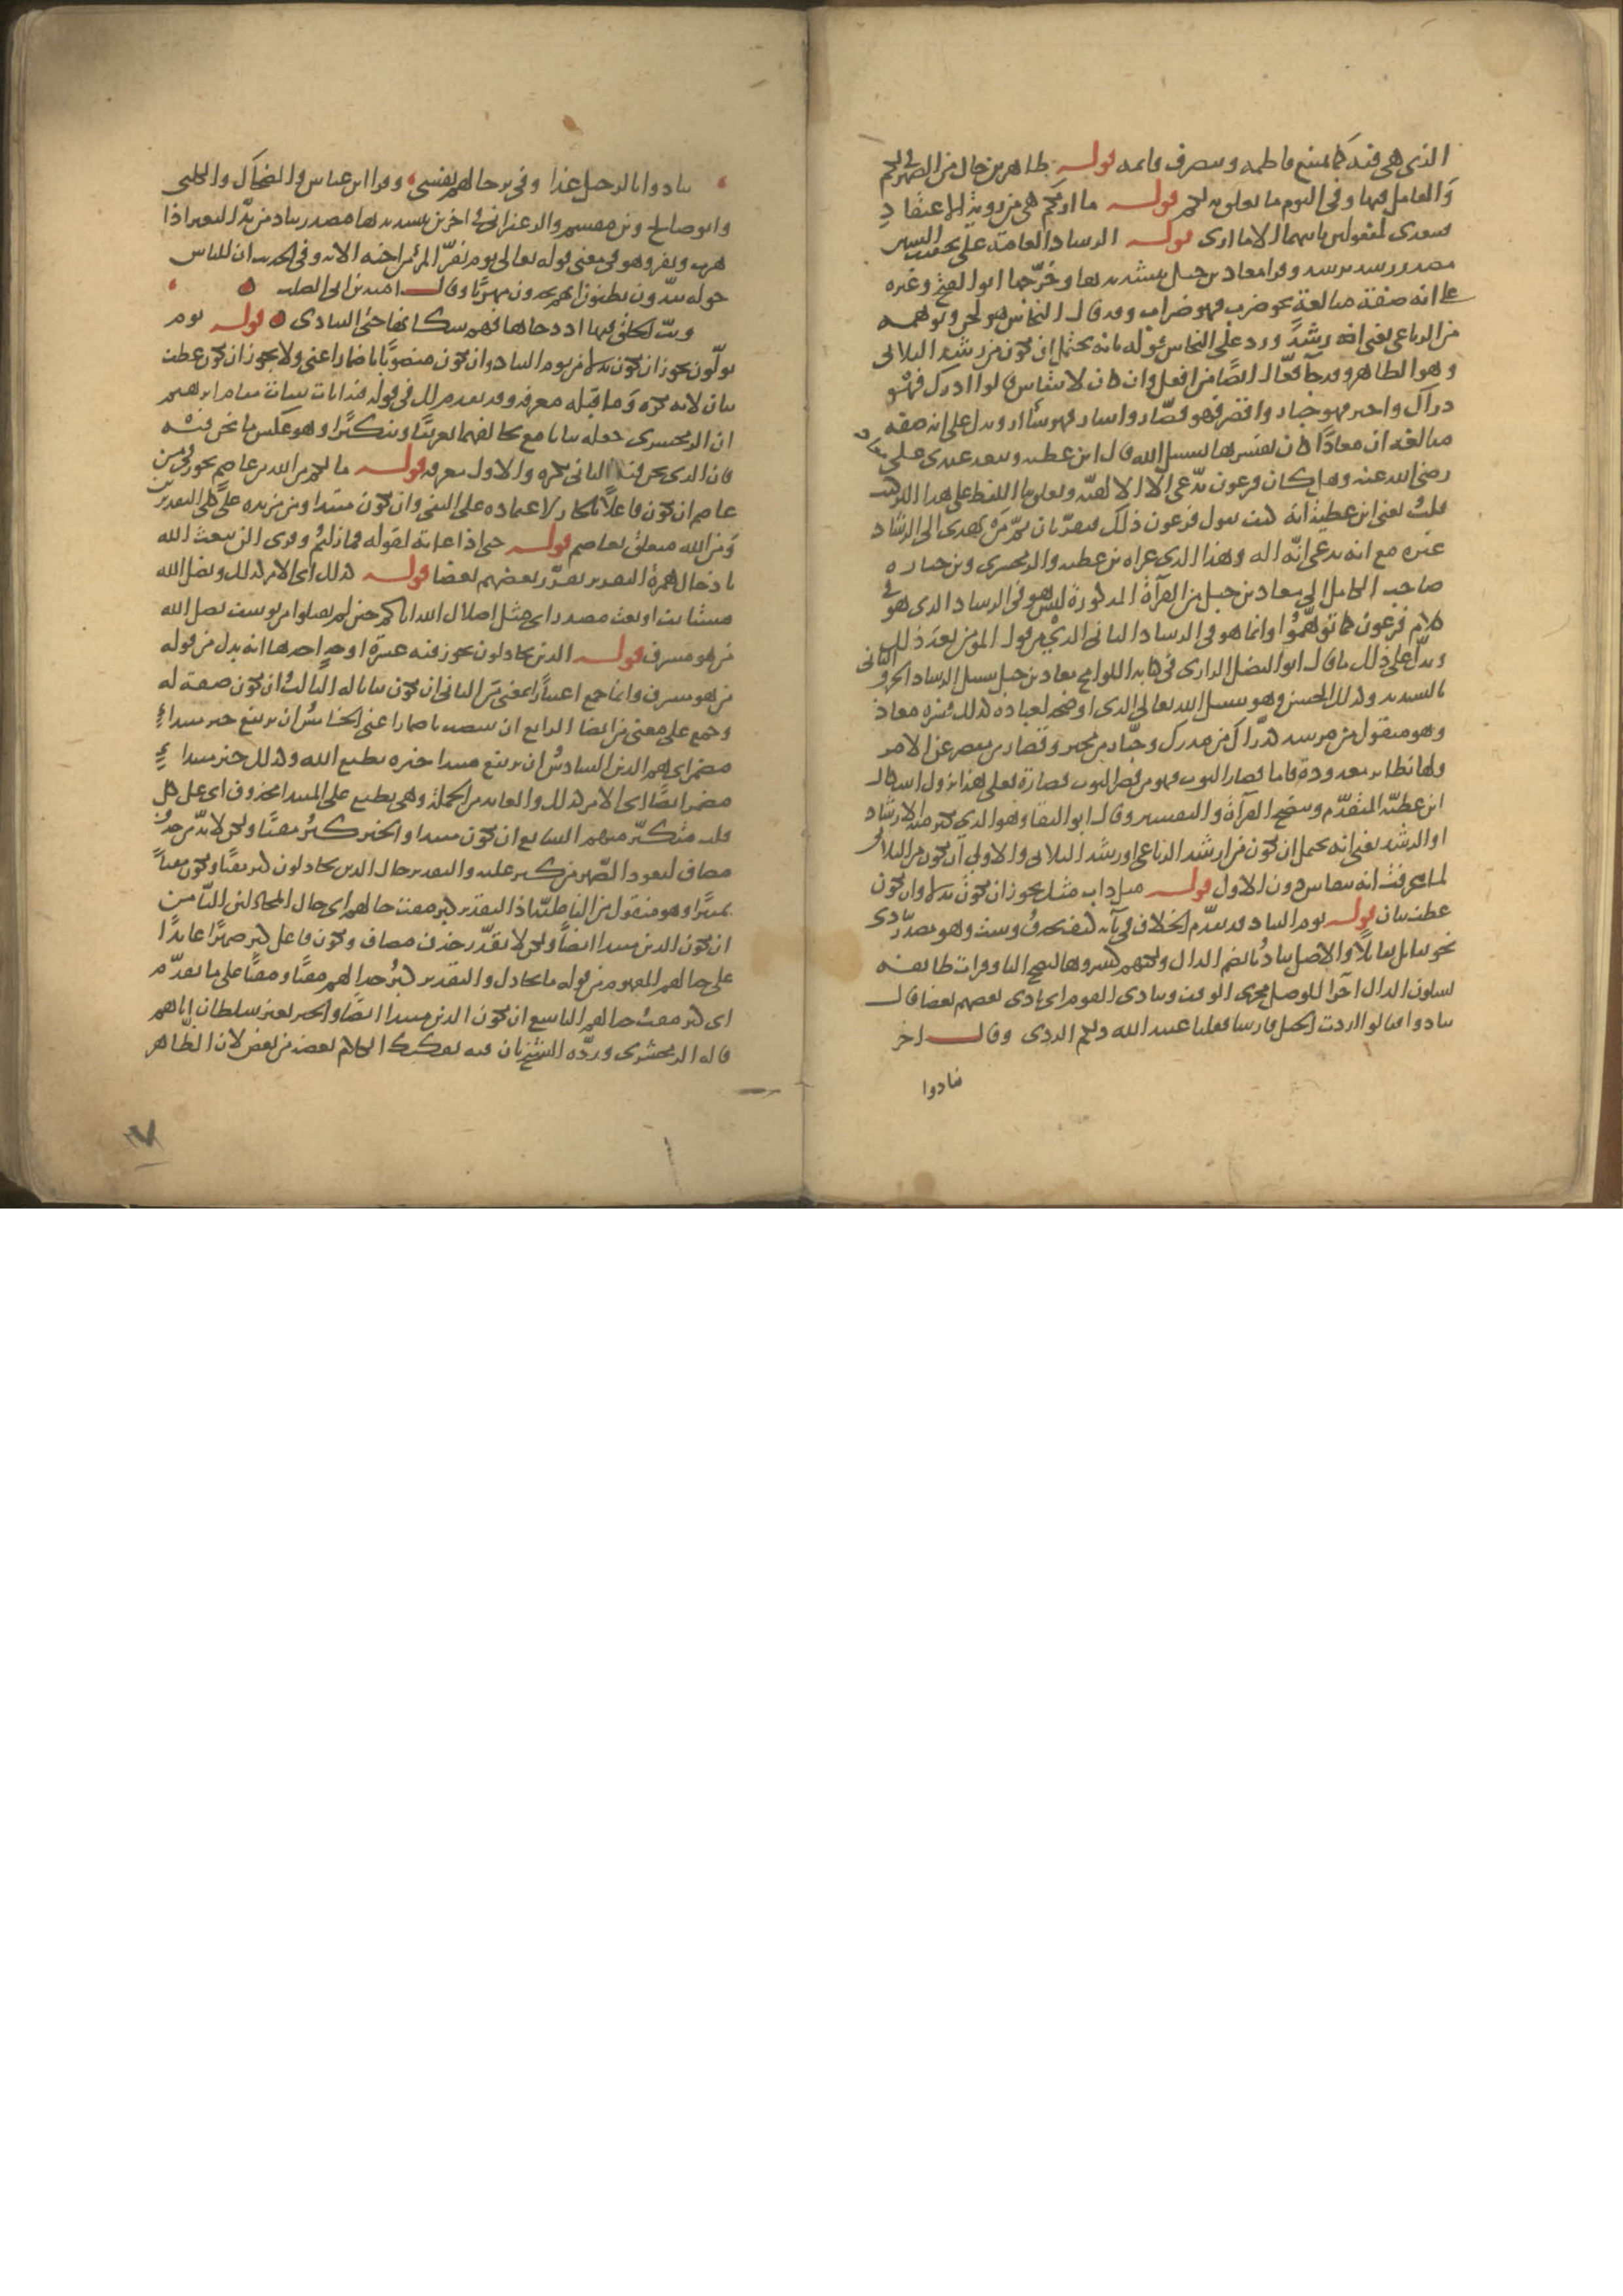 الذي هي فيه كما يمنع فاطمه ويصرف قائمه قوله ظاهرين حال من الضمير في لكم
والعامل فيها وفي اليوم ما تعلق به لكم قوله ما اريكم هي من رؤية الاعتقاد
فيتعدى لمفعولين ثانيهما الا ما ارى قوله الرشاد العامة على تخفيف الشين
مصدر رشد يرشد وقرا معاذ بن جبل بتشديدها وخرجها ابو الفتح وغيره
على انه صفة مبالغة نحو ضرب فهو ضراب وقد قال النحاس هو لحن وتوهمه
من الرباعي يعني ارشد ورد على النحاس قوله بانه يحتمل ان يكون من رشد الثلاثي
وهو الظاهر وقد جاء فعال ايضا من افعل وان كان لا ينقاس قالوا ادرك فهو
دراك واجبر فهو جبار واقصر فهو قصار واسار فهو سأار ويدل على انه صفة
مبالغة ان معاذا كان يفسرها بسبيل الله قال ابن عطيه ويبعد عندي على معاذ
رضي الله عنه وهل كان فرعون يدعي الا الالهية ويقلق بنا اللفظ على هذا التركيب
قلت يعني ابن عطية انه كيف يقول فرعون ذلك فيقر بان ثم من يهدي الى الرشاد
غيره مع انه يدعي انه اله وهذا الذي عزاه بن عطيه والزمخشري وبن جباره
صاحب الكامل الى معاذ بن جبل من القرآة المذكورة ليس هو في الرشاد الذي هو في
كلام فرعون كما توهموا وانما هو في الرشاد الثاني الذي من قول المؤمن بعد ذلك
ويدل على ذلك ما قال ابو الفضل الرازي في كتابه اللوامح معاذ بن جبل سبيل الرشاد الحرف الثاني
بالتشديد وكذلك الحسن وهو سبيل الله تعالى الذي اوضحه لعباده كذلك فسره معاذ
وهو منقول من مرشد كدراك من مدرك وجبار من مجبر وقصار من مقصر عن الامر
ولها نظائر معدودة فاما قصار الثوب فهو من قصر الثوب قصارة فعلى هذا يزول اشكال
ابن عطية المتقدم ويتضح القرآة والتفسير وقال ابو البقا وهو الذي يكثر منه الارشاد
او الرشد يعني انه يحتمل ان يكون من ارشد الرباعي او رشد الثلاثي والاولى ان يكون من الثلاثي
لما عرفت انه ينقاس دون الاول قوله مثل داب مثل يجوز ان يكون بدلا وان يكون
عطف بيان قوله يوم التناد قد تقدم الخلاف في يآئه كيف تحذف وتثبت وهو مصدر تنادى
نحو تقابل تقابلا والاصل تناديا بضم الدال ولكنهم كسروها لتصح اليا وقرات طائفه
بسكون الدال اجرا للوصل مجرى الوقف وتنادى القوم اي نادى بعضهم بعضا قال
تنادوا فقالوا اردت الخيل فارسا فقلنا عبد الله ذلكم الردي وقال اخر
تنادوا
تنادوا بالرحيل غدا وفي ترحالهم نفسي وقرا ابن عباس والضحاك والكلبي
وابو صالح وبن مقسم والزعفراني في اخرين بتشديدها مصدر تناد من ند البعير اذا
هرب ونفر وهو في معنى قوله تعالى يوم يفر المرء من اخيه الايه وفي الحديث ان للناس
جولة يندون يظنون انهم يجدون مهربا وقال اميه بن ابي الصلت
وبث الخلق فيها اذ دحاها فهم سكانها حتى التنادي قوله يوم
تولون يجوز ان يكون بدلا من يوم التناد وان يكون منصوبا باضمار اعني ولا يجوز ان يكون عطف
بيان لانه نكره وما قبله معرفه وقد تقدم لك في قوله فيه ايات بينات مقام ابرهيم
ان الزمخشري جعله بيانا مع تخالفهما تعريفا وتنكيرا وهو عكس ما نحن فيه
فان الذي نحن فيه الثاني نكره والاول معرفه قوله ما لكم من الله من عاصم يجوز في من
عاصم ان يكون فاعلا بالجار لاعتماده على النفي وان يكون مبتدا ومن مزيده على كلي التقديرين
ومن الله متعلق بعاصم قوله حتى اذا غاية لقوله فما زلتم وقرى الن يبعث الله
بادخال همزة التقدير يقرر بعضهم بعضا قوله كذلك اي الامر كذلك ويضل الله
مستانف او نعت مصدر اي مثل اضلال الله اياكم حين لم يقبلوا من يوسف يضل الله
من هو مسرف قوله الذين يجادلون يجوز فيه عشرة اوجه احدها انه بدل من قوله
من هو مسرف وانما جمع اعتبارا بمعنى من الثاني ان يكون بيانا له الثالث ان يكون صفة له
وجمع على معنى من ايضا الرابع ان ينتصب باضمار اعني الخامس ان يرتفع خبر مبتداء
مضمر اي هم الذين السادس ان يرتفع مبتدا خبره يطبع الله وكذلك خبر مبتداء
مضمر ايضا اي الامر كذلك والعائد من الجملة وهي يطبع على المبتدا محذوف اي على كل
قلب متكبر منهم السابع ان يكون مبتدا والخبر كبر مقتا ولكن لا بد من حذف
مضاف ليعود الضمير من كبر عليه والتقدير حال الذين يجادلون كبر مقتا ويكون مقتا
تمييزا وهو منقول من الفاعلية اذ التقدير كبر مقت حالهم اي حال المجادلين الثامن
ان يكون الذين مبتدا ايضا ولكن لا يقدر حذف مضاف ويكون فاعل كبر ضميرا عائدا
على جدالهم المفهوم من قوله ما يجادل والتقدير كبر جدالهم مقتا ومقتا على ما تقدم
اي كبر مقت جدالهم التاسع ان يكون الذين مبتدا ايضا والخبر بغير سلطان اتاهم
قاله الزمخشري ورده الشيخ بان فيه تفكيك الكلام بعضه من بعض لان الظاهر